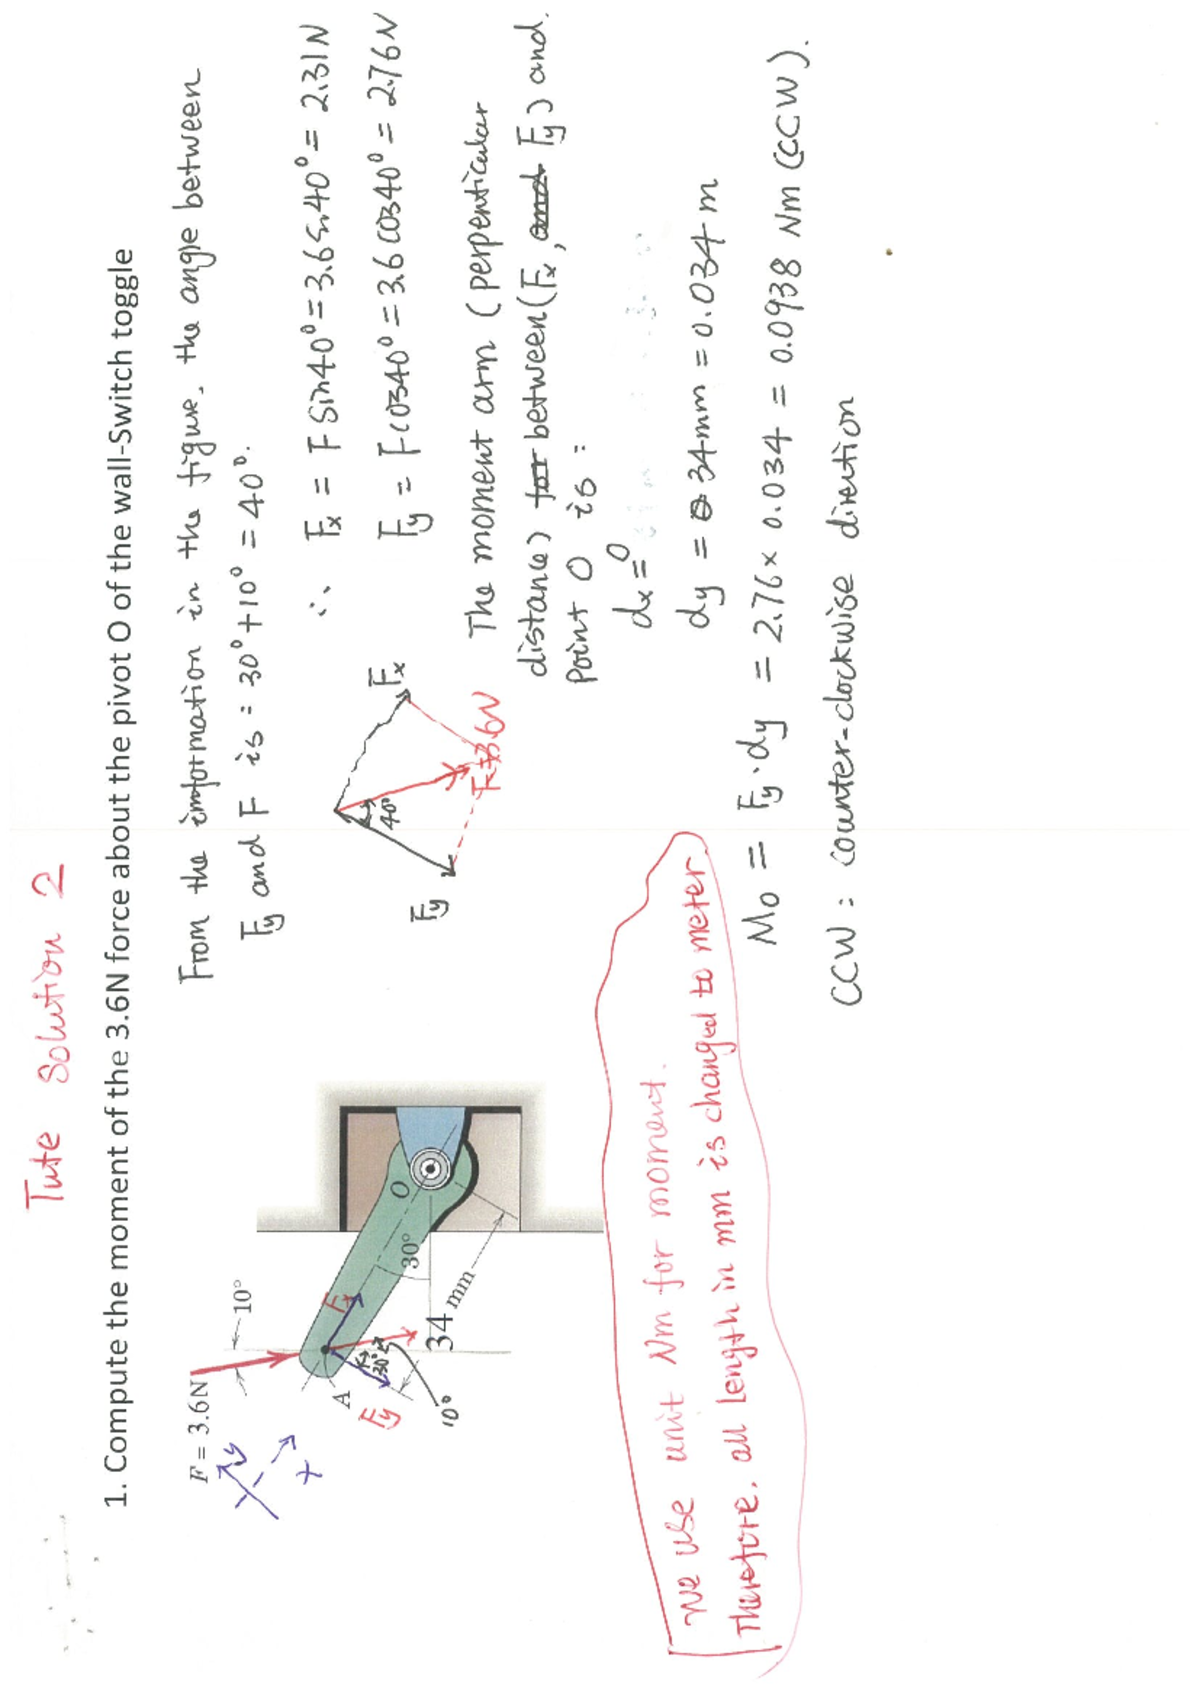 Tute Solution 2
1. Compute the moment of the 3.6N force about the pivot O of the wall-Switch toggle
F = 3.6N
10°
y
x
A
O
Fx
Fy
30°
30°
10°
34 mm
From the imformation in the figure, the angle between
Fy and F is = 30° + 10° = 40°.
Fy
Fx
40°
F=3.6N
∴ Fx = F Sin40° = 3.6 Sin40° = 2.31N
Fy = F cos40° = 3.6 cos40° = 2.76N
The moment arm (perpenticular
distance) for between (Fx, and Fy) and.
Point O is :
dx = 0
dy = 34mm = 0.034 m
Mo = Fy · dy = 2.76 x 0.034 = 0.0938 Nm (CCW).
CCW : counter-clockwise direction
We use unit Nm for moment.
Therefore, all length in mm is changed to meter.